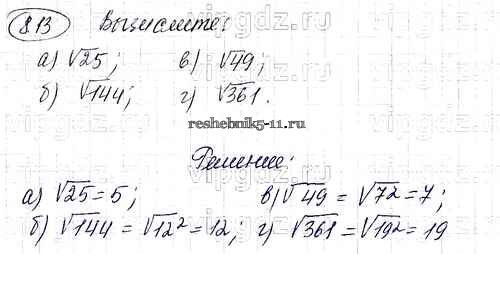 8.13 Вычислите:
а) √25; в) √49;
б) √144; г) √361.
reshebnik5-11.ru
Решение:
а) √25 = 5; в) √49 = √7² = 7;
б) √144 = √12² = 12; г) √361 = √19² = 19